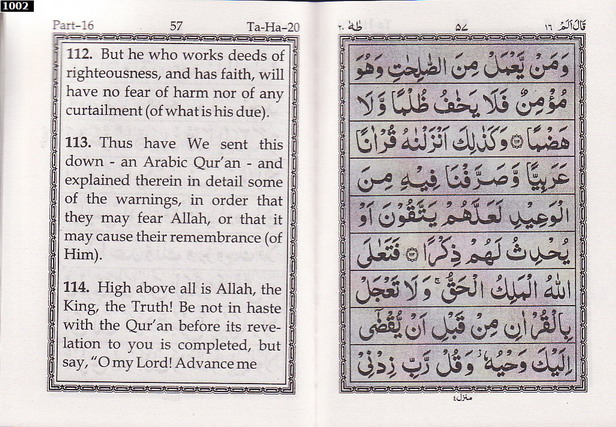 1002
Part-16 57 Ta-Ha-20
112. But he who works deeds of
righteousness, and has faith, will
have no fear of harm nor of any
curtailment (of what is his due).
113. Thus have We sent this
down - an Arabic Qur’an - and
explained therein in detail some
of the warnings, in order that
they may fear Allah, or that it
may cause their remembrance (of
Him).
114. High above all is Allah, the
King, the Truth! Be not in haste
with the Qur’an before its reve-
lation to you is completed, but
say, “O my Lord! Advance me
قال الم ١٦ ٥٧ طه ٢٠
وَمَنْ يَّعْمَلْ مِنَ الصّٰلِحٰتِ وَهُوَ
مُؤْمِنٌ فَلَا يَخٰفُ ظُلْمًا وَّلَا
هَضْمًا ۝١١٢ وَكَذٰلِكَ اَنْزَلْنٰهُ قُرْاٰنًا
عَرَبِيًّا وَّصَرَّفْنَا فِيْهِ مِنَ
الْوَعِيْدِ لَعَلَّهُمْ يَتَّقُوْنَ اَوْ
يُحْدِثُ لَهُمْ ذِكْرًا ۝١١٣ فَتَعٰلَى
اللّٰهُ الْمَلِكُ الْحَقُّ ۚ وَلَا تَعْجَلْ
بِالْقُرْاٰنِ مِنْ قَبْلِ اَنْ يُّقْضٰٓى
اِلَيْكَ وَحْيُهٗ ۫ وَقُلْ رَّبِّ زِدْنِيْ
منزل٤